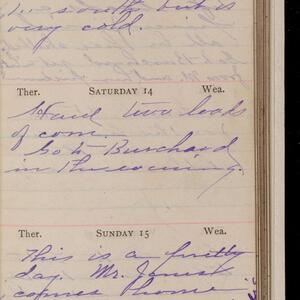 to south but is
very cold.
Ther. SATURDAY 14 Wea.
Haul two loads
of corn.
Go to Burchard
in the evening.
Ther. SUNDAY 15 Wea.
This is a pretty
day. Mr.
comes home